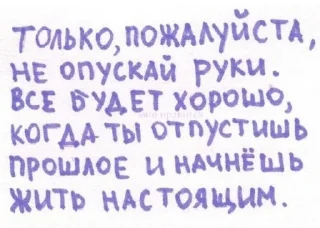 ТОЛЬКО, ПОЖАЛУЙСТА,
НЕ ОПУСКАЙ РУКИ.
ВСЕ БУДЕТ ХОРОШО,
КОГДА ТЫ ОТПУСТИШЬ
ПРОШЛОЕ И НАЧНЁШЬ
ЖИТЬ НАСТОЯЩИМ.